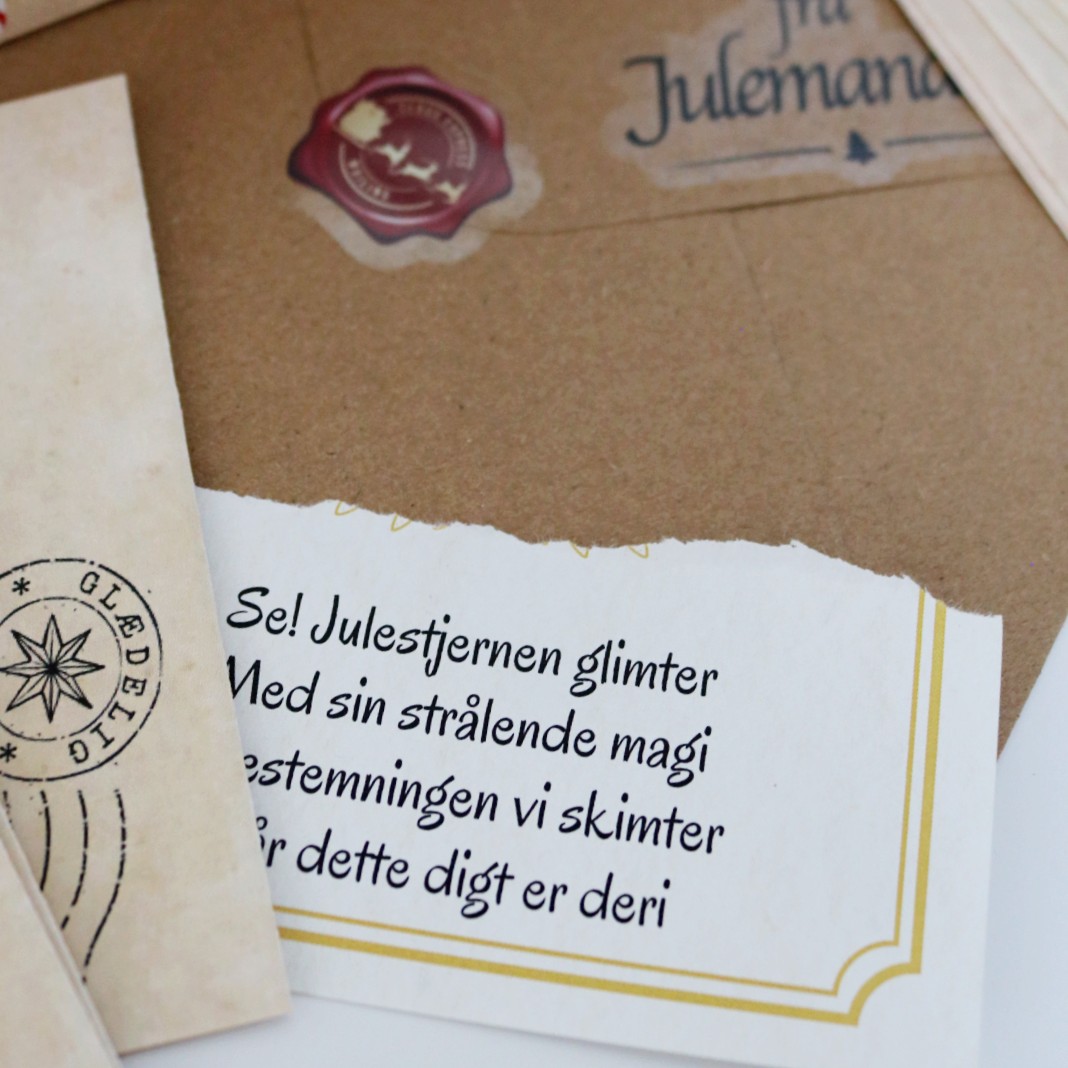 fra
Julemand
GLÆDELIG
Se! Julestjernen glimter
Med sin strålende magi
estemningen vi skimter
år dette digt er deri